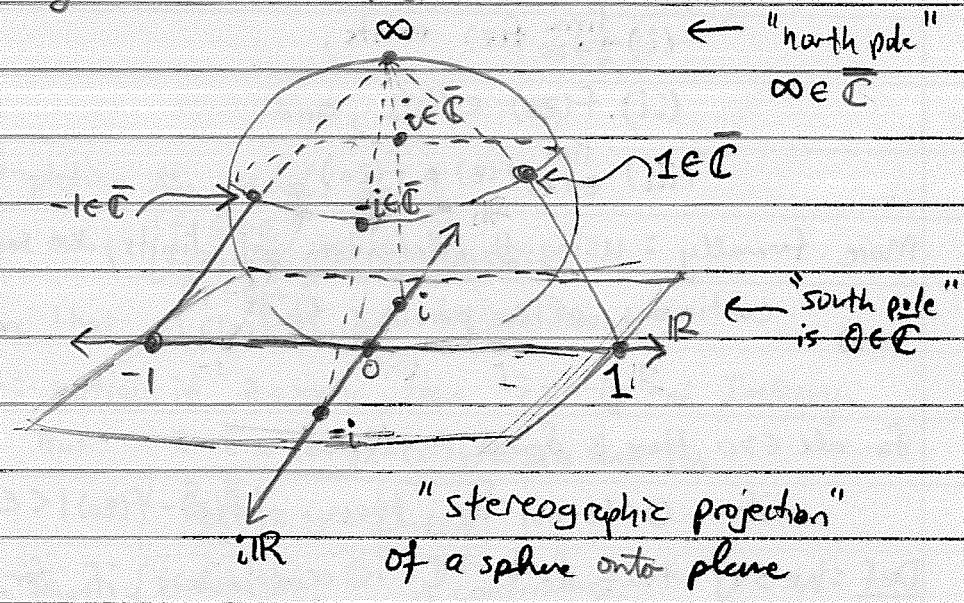 ∞
← "north pole"
∞ ∈ ℂ̅
i ∈ ℂ̅
1 ∈ ℂ̅
-1 ∈ ℂ̅
-i ∈ ℂ̅
i
← "south pole"
is 0 ∈ ℂ̅
ℝ
-1
0
1
-i
iℝ
"stereographic projection"
of a sphere onto plane